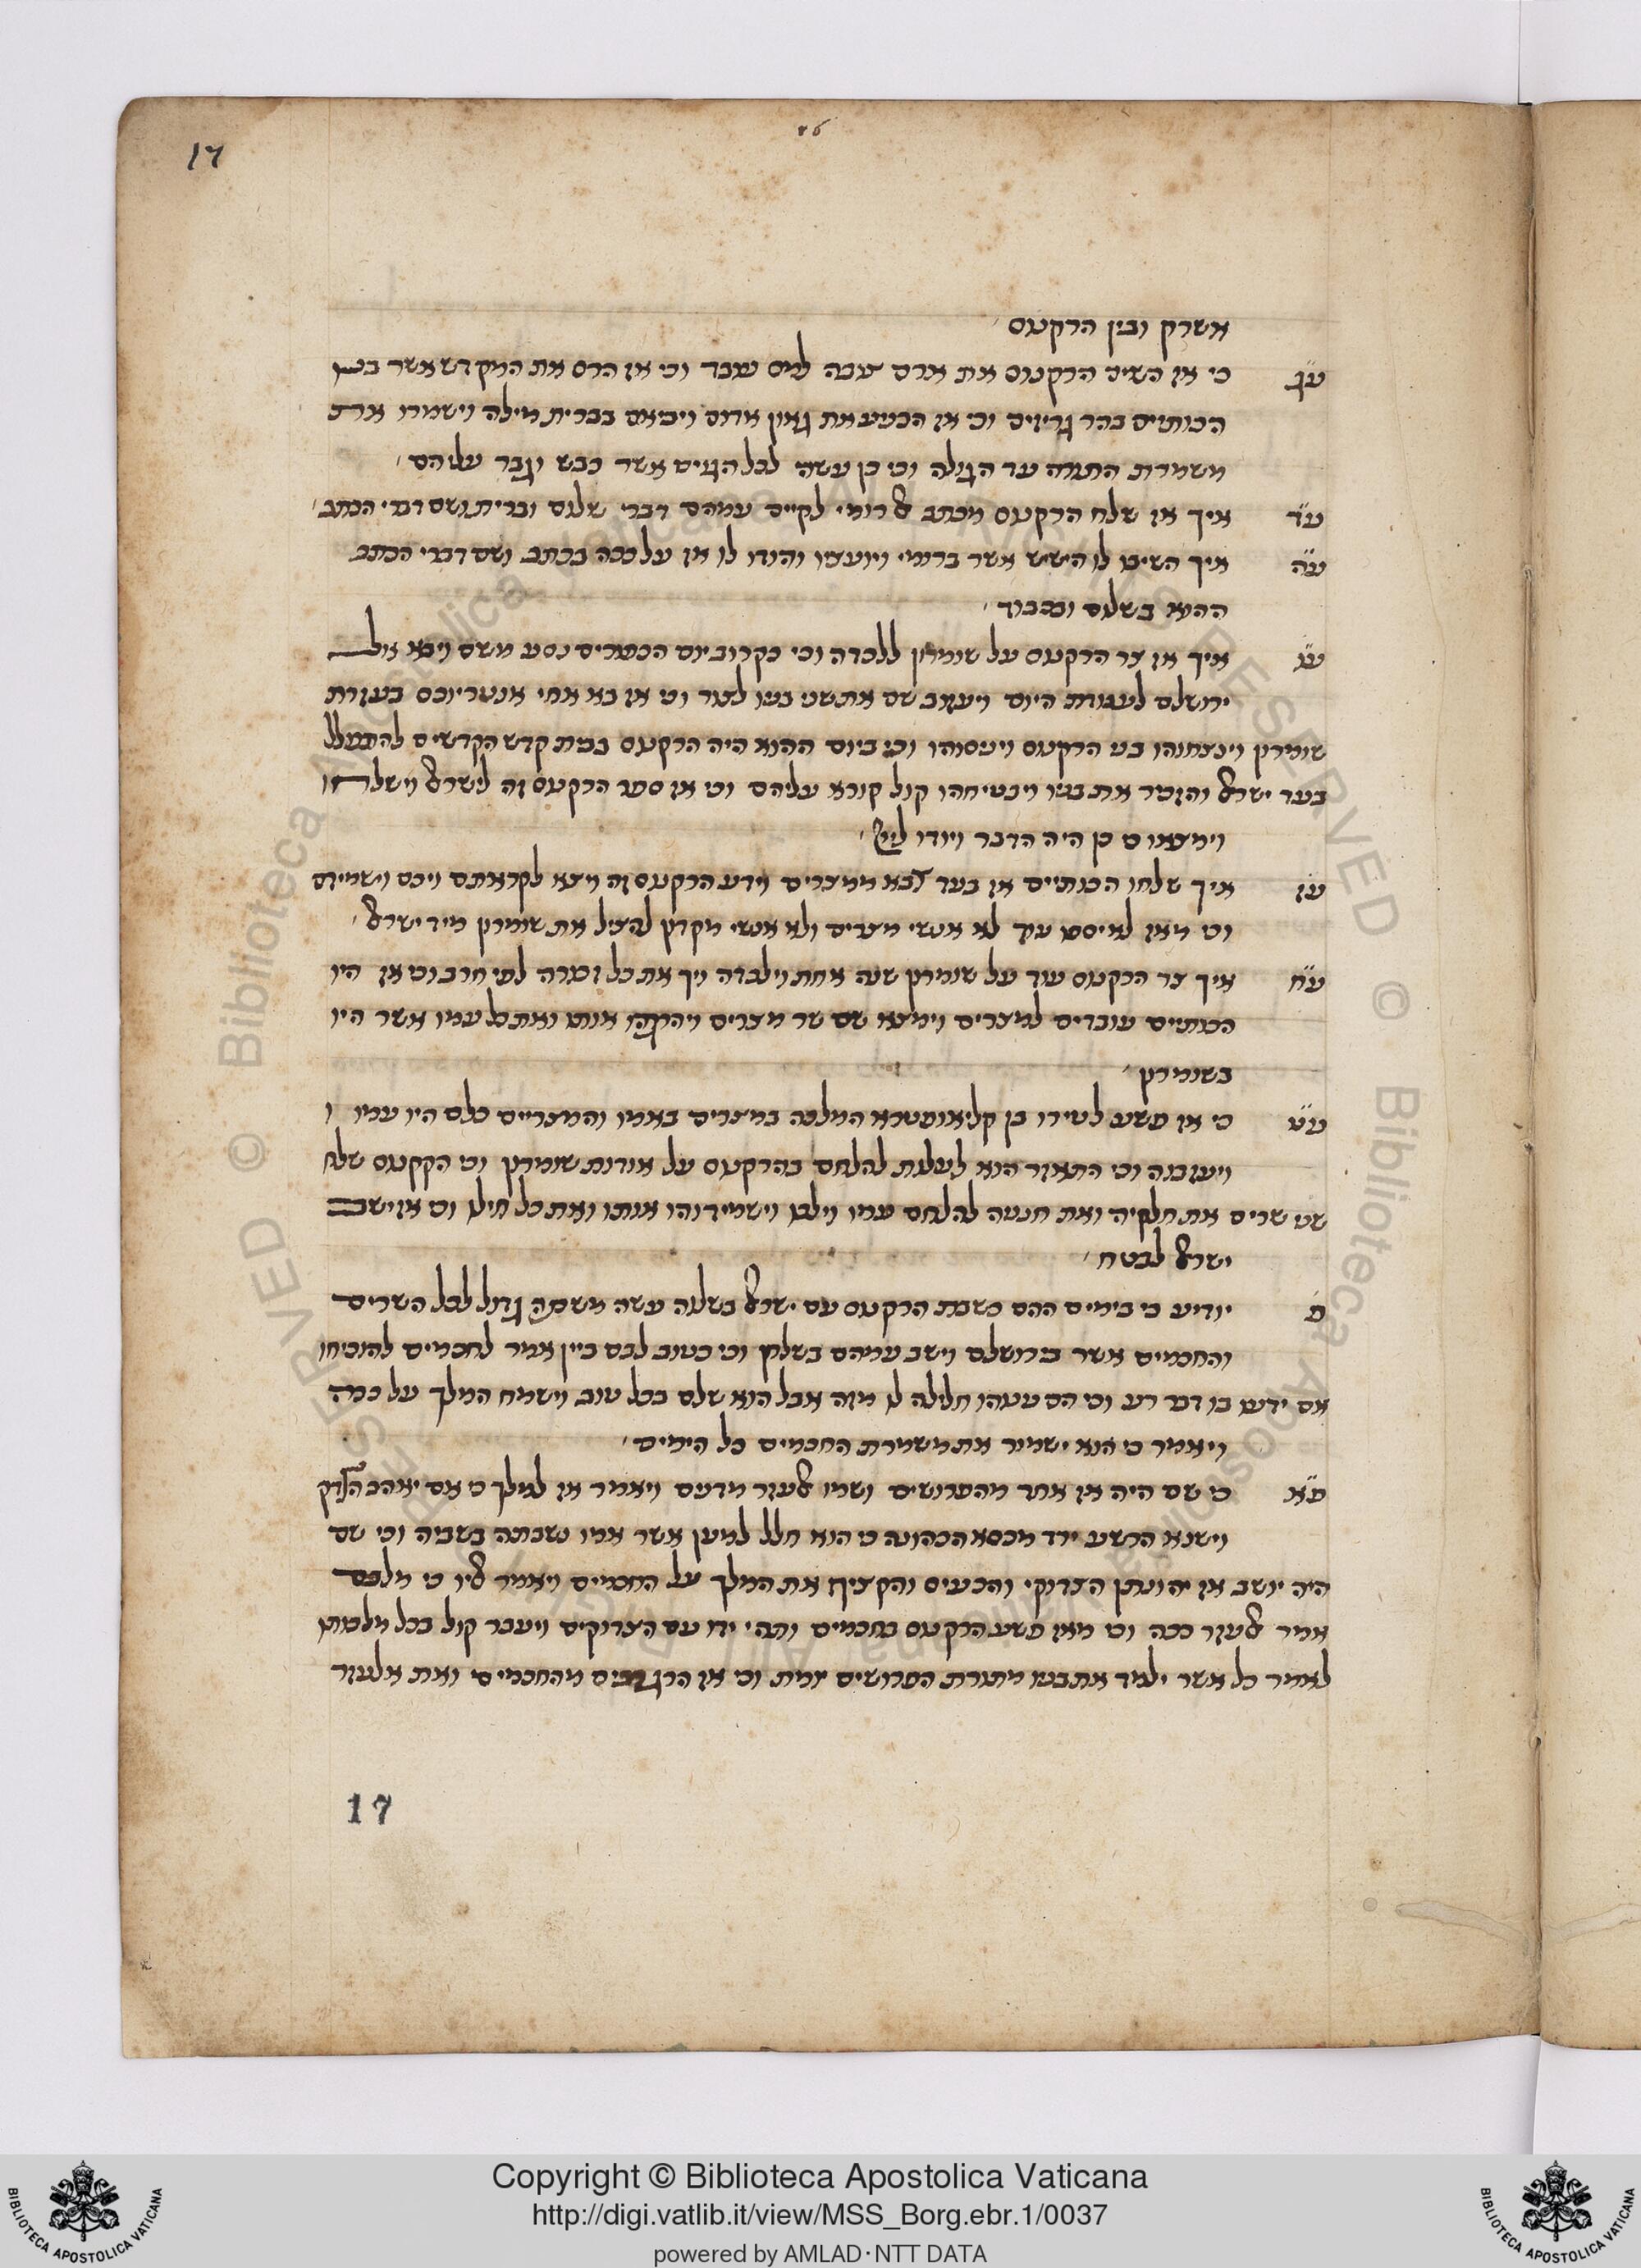 17
אשרק ובין הרקנוס
ע״ג כי אז השיב הרקנוס את ארם צובה למס עובד וכי אז הרס את המקדש אשר בנו
הכותיים בהר גריזים וכי אז הכניע את גאון אדום ויביאם בברית מילה וישמרו את
משמרת התורה עד הגולה וכי כן עשה לכל הגוים אשר כבש וגבר עליהם
ע״ד איך אז שלח הרקנוס מכתב אל רומי לקיים עמהם דברי שלום וברית ושם דברי הכתב
ע״ה איך השיבו לו היושש אשר ברומי ויועצו והודו לו אז על ככה בכתב ושם דברי הכתב
ההוא בשלום ובכבוד
ע״ו איך אז צר הרקנוס על שומרון ללכדה וכי בקרוב יום הכפורים נסע משם ויבא אל
ירושלם לעבודת היום ויעזוב שם את שני בניו לצור וכי אז בא אחי אנטריוכס בעזרת
שומרון וינצחוהו בני הרקנוס ויניסוהו וכי ביום ההוא היה הרקנוס בבית קדש הקדשים להתפלל
בעד ישראל והזכיר את בניו ויבטיחהו קול קורא עליהם וכי אז ספר הרקנוס זה לישראל וישלחו
וימצאו כי כן היה הדבר ויודו לייי
ע״ז איך שלחו הכותיים אז בעד צבא ממצרים וידע הרקנוס זה ויצא לקראתם ויכם וישמידם
וכי מאז לא יספו עוד לא אנשי מצרים ולא אנשי מקדון להציל את שומרון מיד ישראל
ע״ח איך צר הרקנוס עוד על שומרון שנה אחת וילכדה ויך את כל זכורה לפי חרב וכי אז היו
הכותיים עובדים למצרים וימצא שם שר מצרים ויהרגהו אותו ואת כל עמו אשר היו
בשומרון
ע״ט כי אז פשע לטירו בן קליאופטרא המלכה במצרים באמו והמצריים כלם היו עמו
ויעזבוה וכי התאזר הוא לעלות להלחם בהרקנוס על אודות שומרון וכי הקקנוס שלח
שני שרים את חלקיה ואת חנניה להלחם עמו וילכו וישמידוהו אותו ואת כל חילו וכי אז ישב
ישראל לבטח
פ יודיע כי בימים ההם כשבת הרקנוס עם ישראל בשלוה עשה משתה גדול לכל השרים
והחכמים אשר בירושלם וישב עמהם בשלחן וכי כטוב לבם ביין אמר לחכמים להוכיחו
אם ידעו בו דבר רע וכי הם ענוהו חלילה לו מזה אבל הוא שלם בכל טוב וישמח המלך על ככה
ויאמר כי הוא ישמור את משמרת החכמים כל הימים
פ״א כי שם היה אז אחד מהפרושים ושמו אלעזר מדעם ויאמר אז למלך כי אם יאהב הצדק
וישנא הרשע ירד מכסא הכהונה כי הוא חלל למען אשר אמו נשבתה בשביה וכי שם
היה יושב אז יהונתן הצדוקי והכעיס והקציף את המלך על החכמים ויאמר אליו כי מלבם
אמר אלעזר ככה וכי מאז פשע הרקנוס בחכמים ותהי ידו עם הצדוקים ויעבר קול בכל מלכותו
לאמר כל אשר ילמד את בניו מתורת הפרושים יומת וכי אז הרג רבים מהחכמים ואת אלעזר
17
Copyright © Biblioteca Apostolica Vaticana
http://digi.vatlib.it/view/MSS_Borg.ebr.1/0037
powered by AMLAD · NTT DATA
BIBLIOTECA APOSTOLICA VATICANA
BIBLIOTECA APOSTOLICA VATICANA